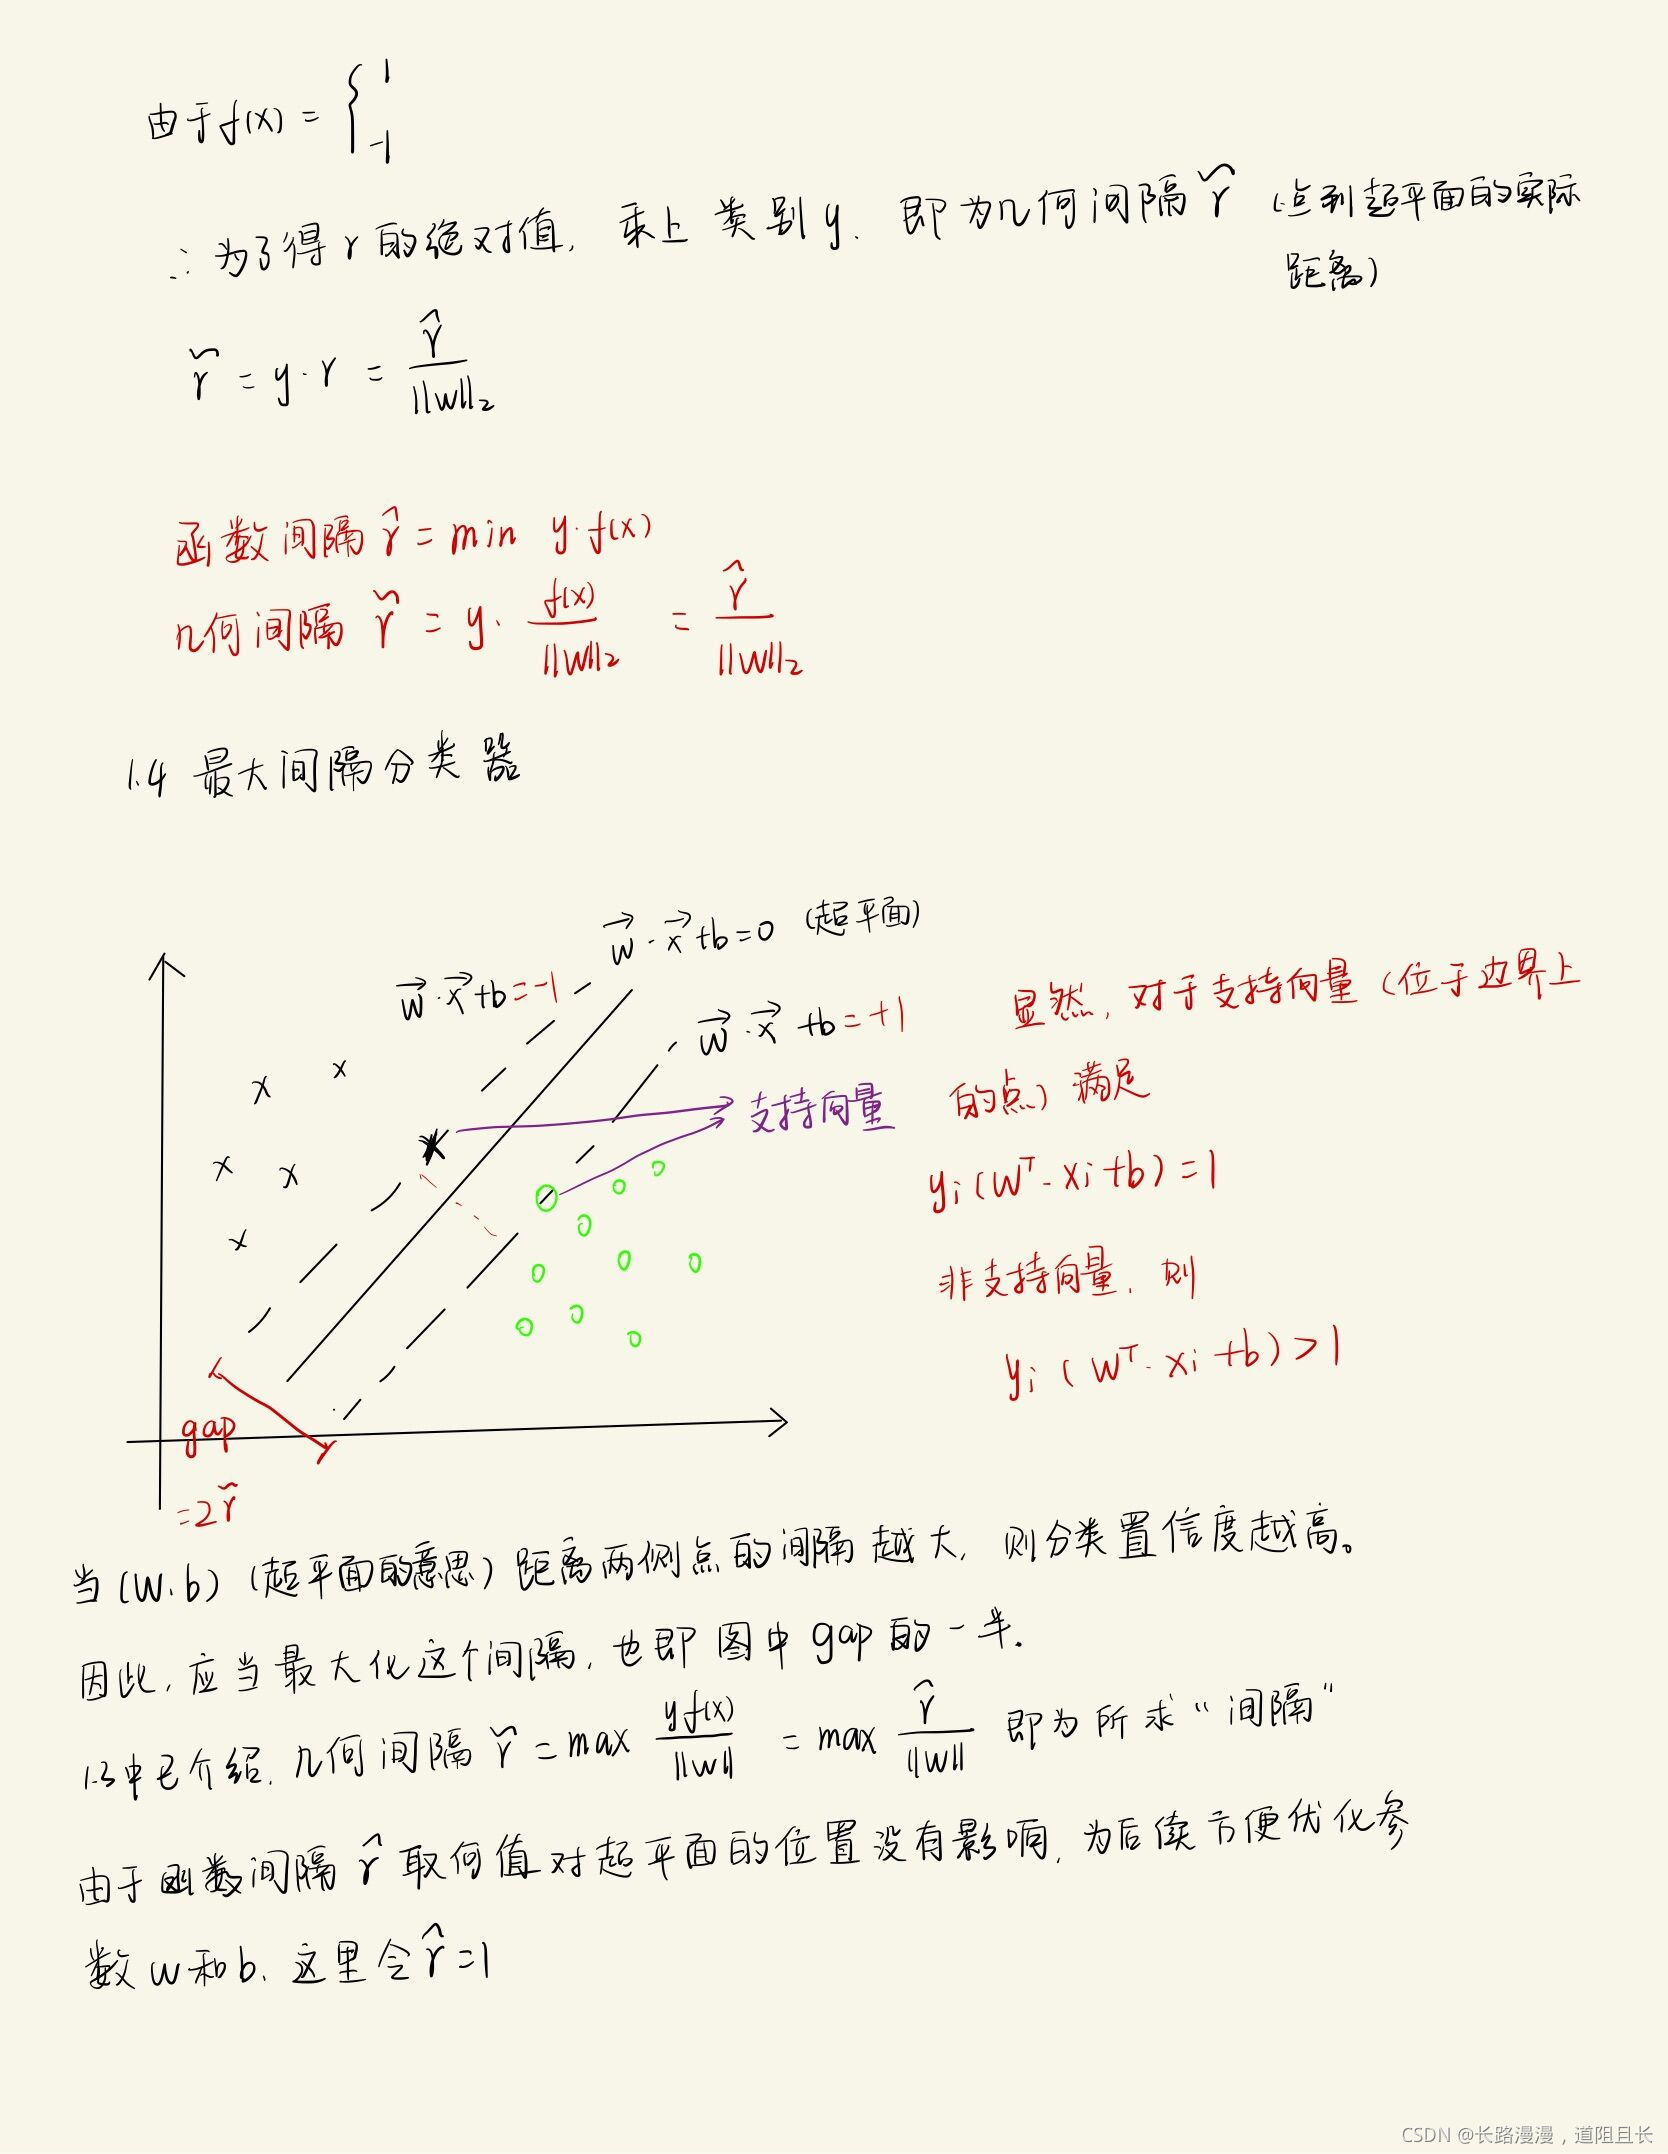 由于f(x) = { 1
-1
∴为了得r的绝对值, 乘上类别y. 即为几何间隔r̃ (点到超平面的实际
距离)
r̃ = y·r = r̂/||w||₂
函数间隔 r̂ = min y·f(x)
几何间隔 r̃ = y· f(x)/||w||₂ = r̂/||w||₂
1.4 最大间隔分类器
w⃗·x⃗+b=0 (超平面)
w⃗·x⃗+b=-1
w⃗·x⃗+b=+1
支持向量
显然, 对于支持向量(位于边界上
的点)满足
yᵢ(wᵀ·xᵢ+b)=1
非支持向量, 则
yᵢ(wᵀ·xᵢ+b)>1
gap
=2r̃
当(w.b)(超平面的意思)距离两侧点的间隔越大, 则分类置信度越高。
因此, 应当最大化这个间隔, 也即图中gap的一半.
1.3中已介绍, 几何间隔 r̃ = max yf(x)/||w|| = max r̂/||w|| 即为所求“间隔”
由于函数间隔 r̂ 取何值对超平面的位置没有影响, 为后续方便优化参
数w和b, 这里令r̂=1
CSDN @长路漫漫，道阻且长